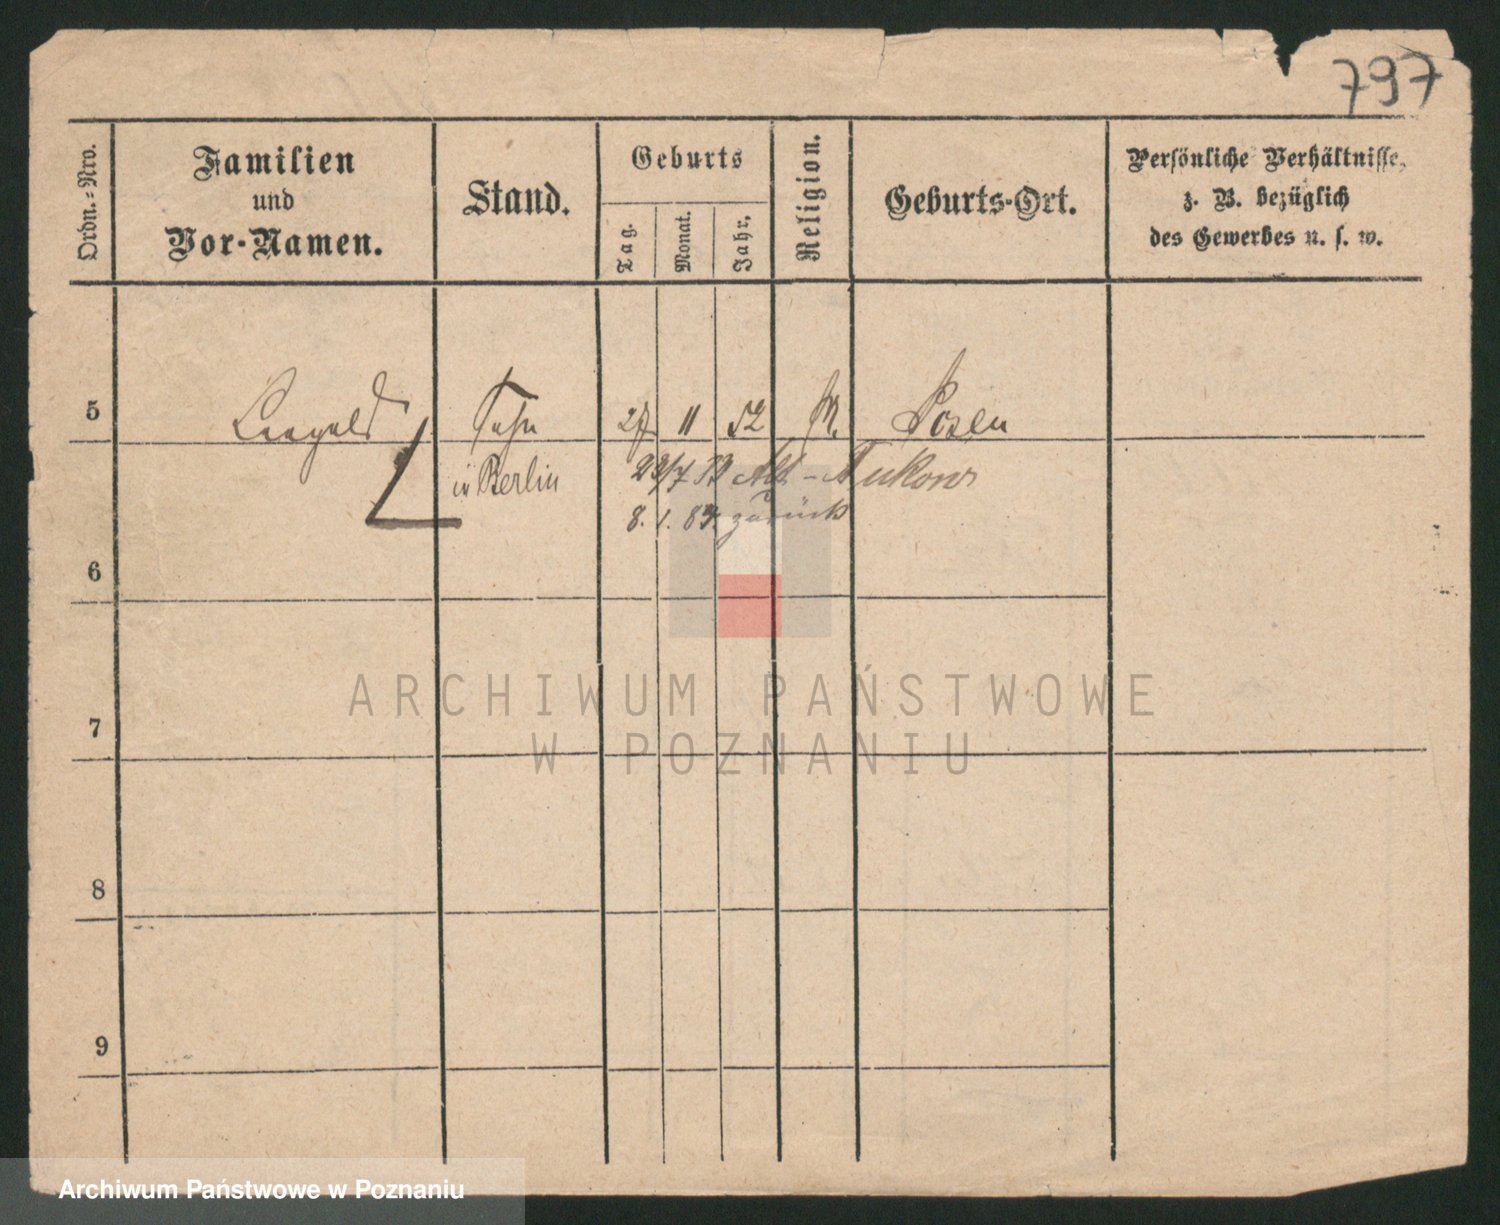 797
Ordn.-Nro.
Familien
und
Vor-Namen.
Stand.
Geburts
Tag.
Monat.
Jahr.
Religion.
Geburts-Ort.
Persönliche Verhältnisse,
z. B. bezüglich
des Gewerbes u. s. w.
5
Leopold Sohn 27 11 52 Posen
in Berlin
Alt-
8. 1. 84. zurück
6
7
8
9
ARCHIWUM PAŃSTWOWE
W POZNANIU
Archiwum Państwowe w Poznaniu